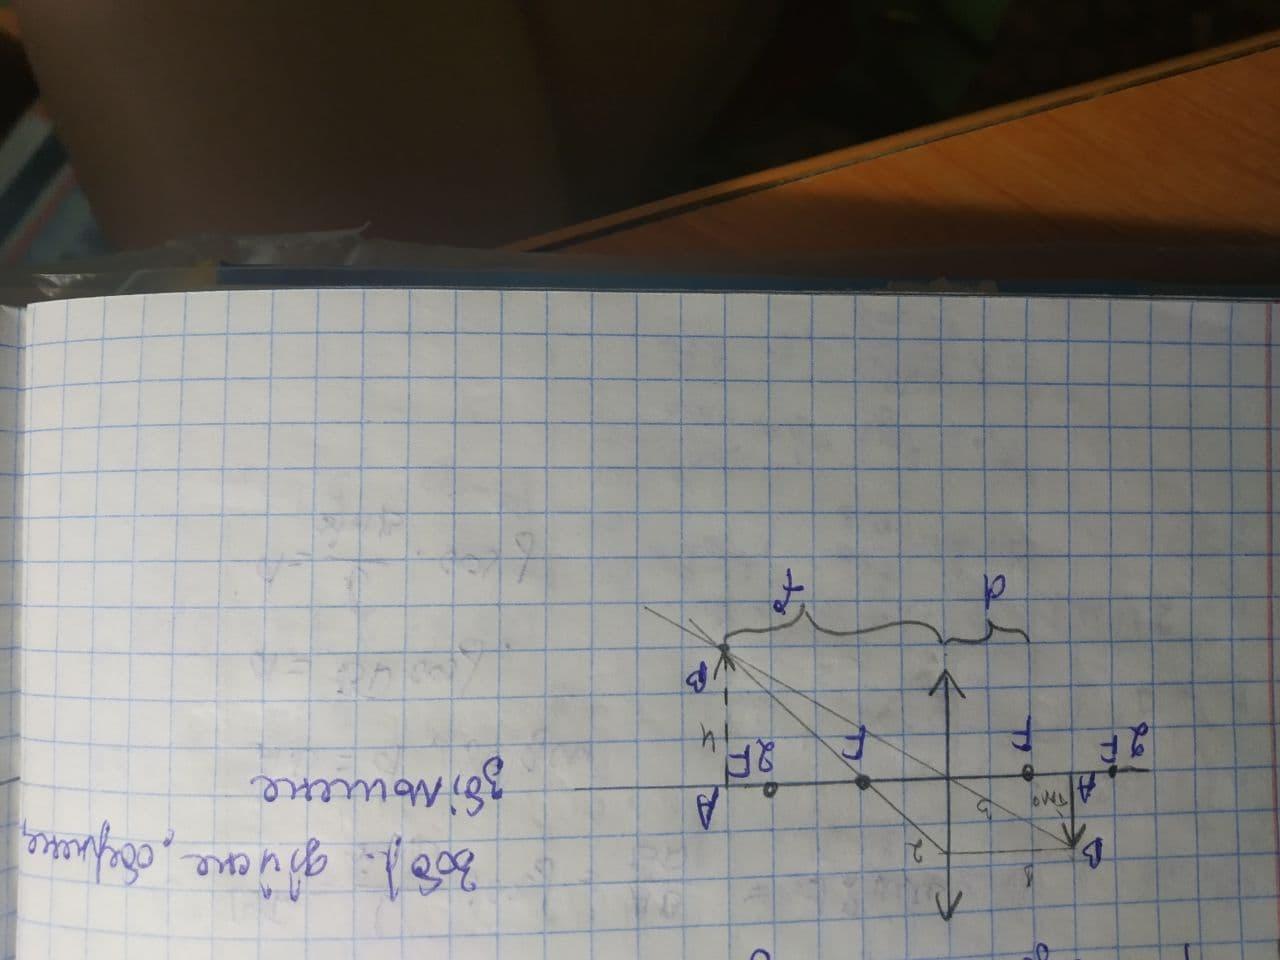 2F
F
F
2F
A
B
A
B
d
f
1
2
3
Зобр. дійсне, обернене,
збільшене